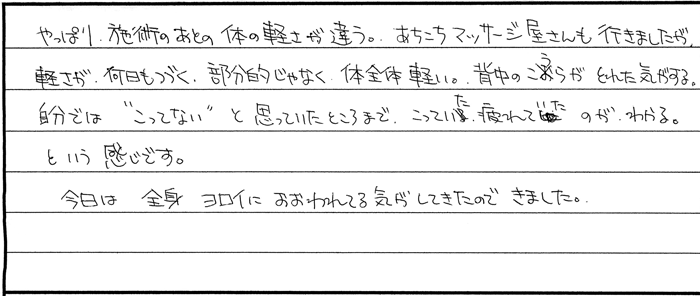 やっぱり、施術のあとの体の軽さが違う。あちこちマッサージ屋さんも行きましたが、
軽さが、何日もつづく、部分的じゃなく、体全体軽い。背中のこうらがとれた気がする。
自分では"こってない"と思っていたところまで、こっていた、疲れていたのが、わかる。
という感じです。
今日は全身ヨロイにおおわれてる気がしてきたのできました。